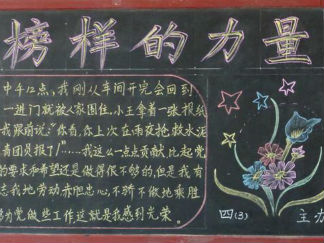 榜样的力量
中午12点、我刚从车间开完会回到
一进门就被人家围住,小王拿着一张报纸
我跟前说:“你看,你上次在雨夜抢救水泥
青团员报了”……我这么一点点贡献,比起党
的要求和希望还是做得很不够的,但是我有
志我地劳动赤胆忠心,不骄不傲地乘胜
为党做些工作这就是我感到光荣。
四(3)
主办